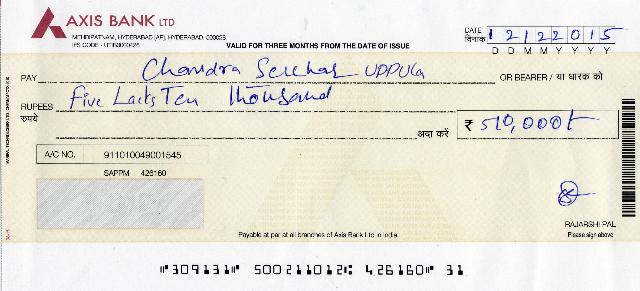 AXIS BANK LTD
MEHDIPATNAM, HYDERABAD [AP], HYDERABAD, 500028
IFS CODE - UTIB0000426
VALID FOR THREE MONTHS FROM THE DATE OF ISSUE
DATE दिनांक 12122015
D D M M Y Y Y Y
PAY Chandra Sekhar UPPUla OR BEARER / या धारक को
RUPEES रुपये Five Lacks Ten Thousand
अदा करें ₹ 510,000/-
A/C NO. 911010049001545
SAPPM 426160
RAJARSHI PAL
Payable at par at all branches of Axis Bank Ltd in India
Please sign above
⑈309131⑈ 500211012⑆ 426160⑈ 31